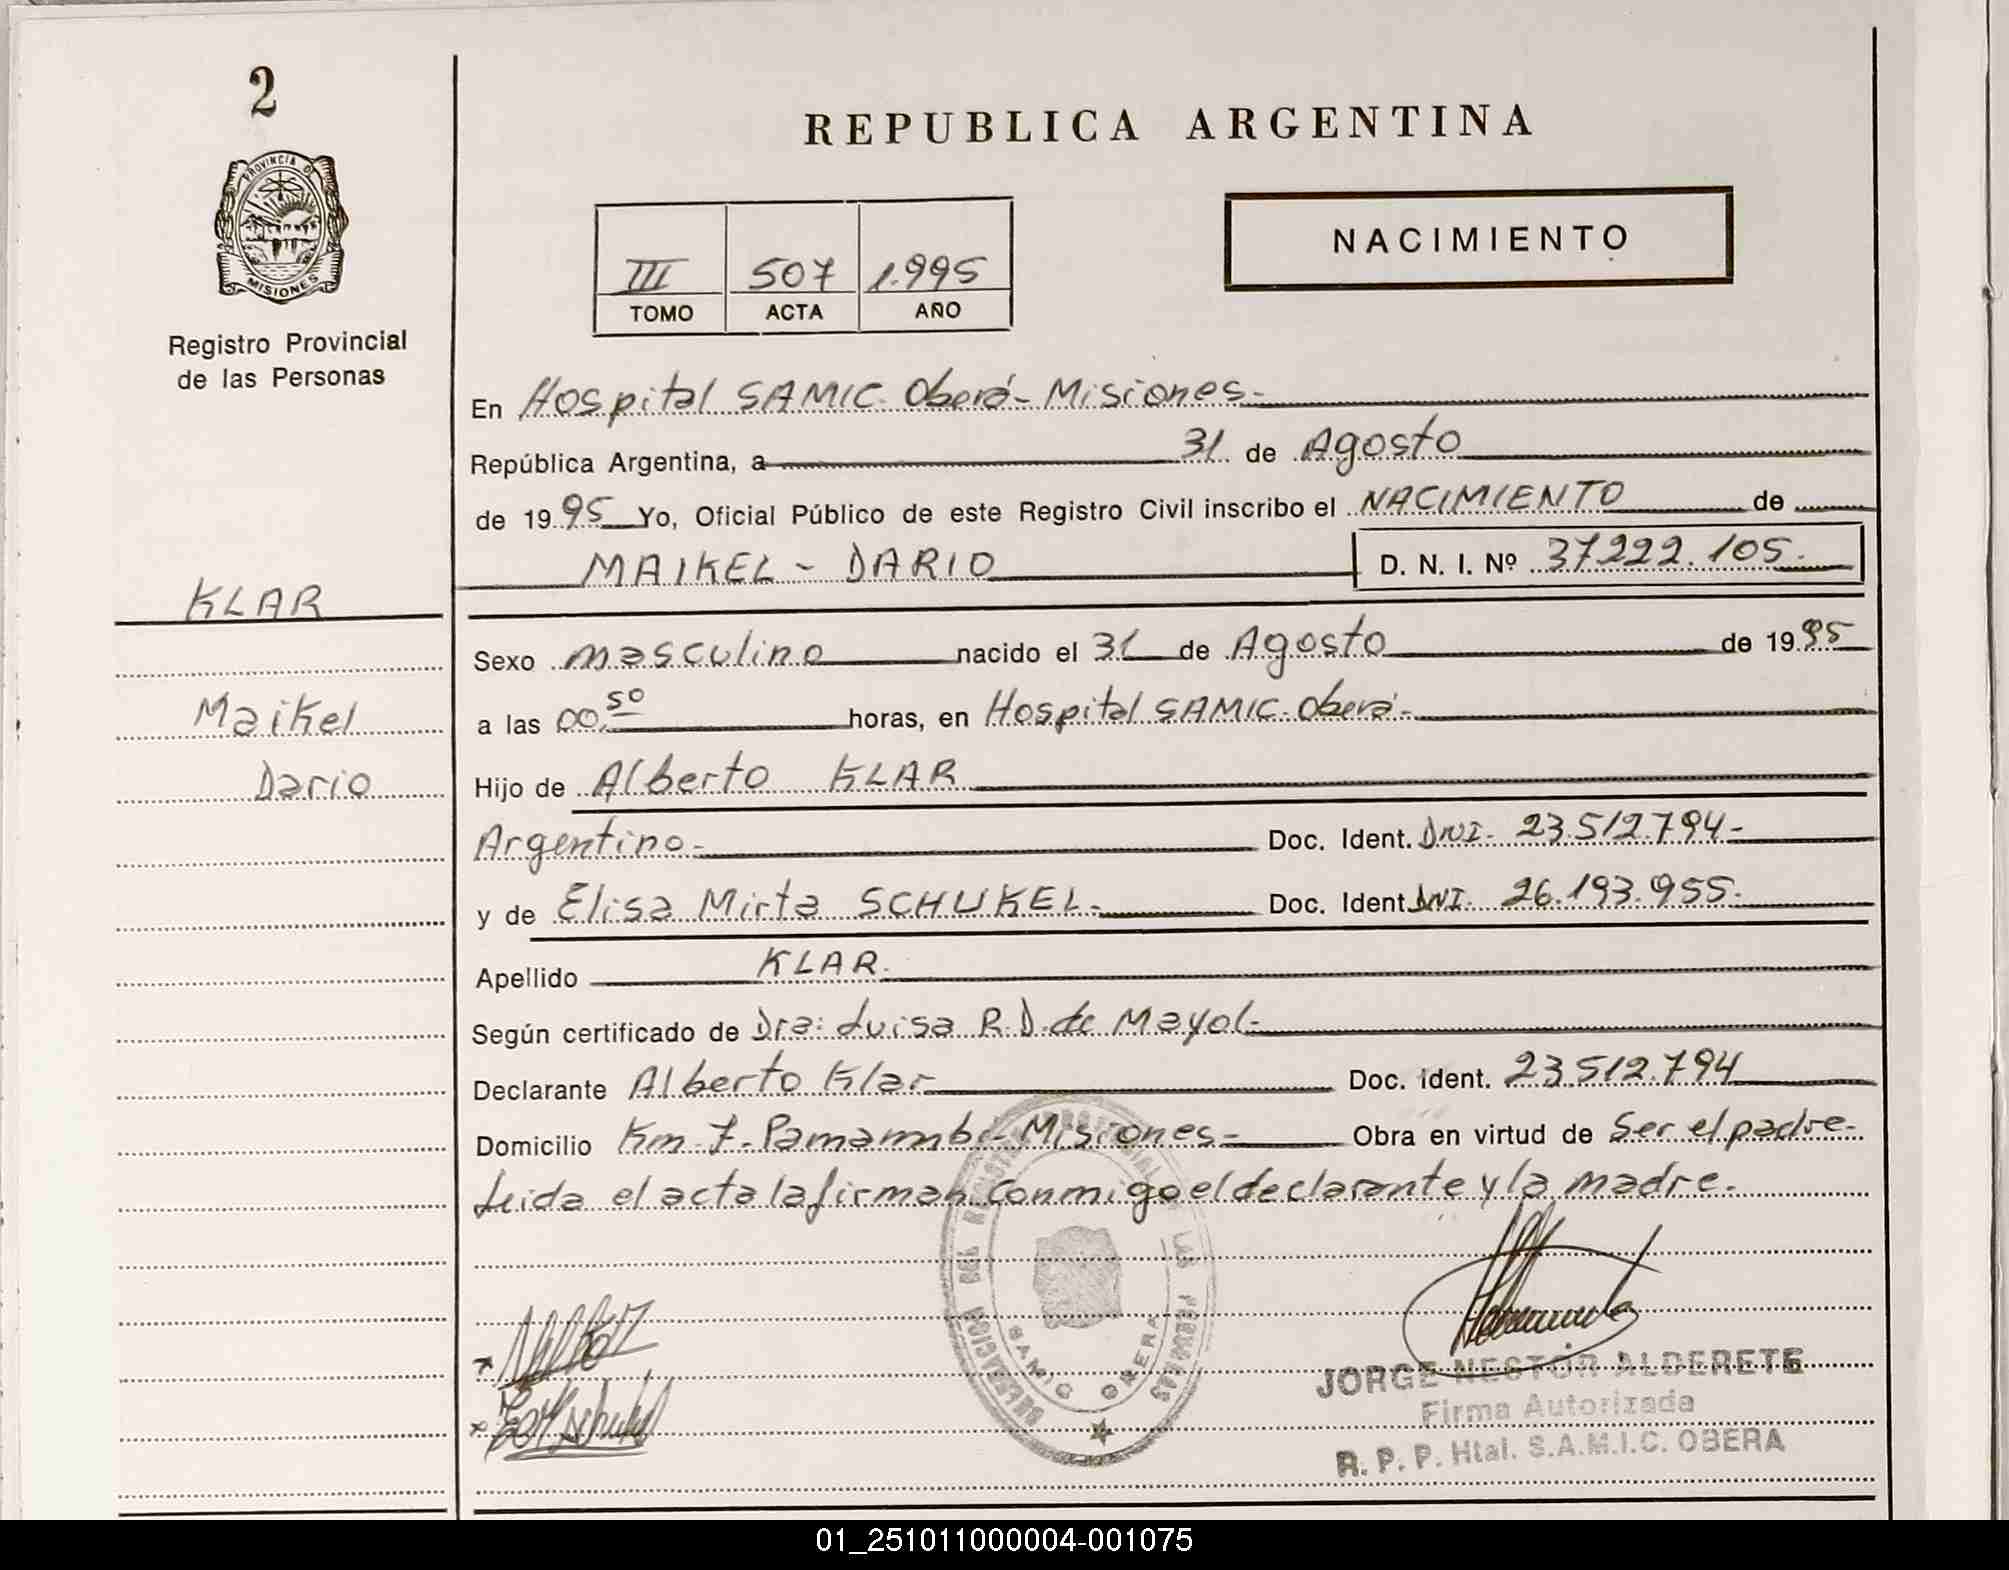 2
PROVINCIA DE
MISIONES
Registro Provincial
de las Personas
KLAR
Maikel
Dario
REPUBLICA ARGENTINA
NACIMIENTO
III 507 1.995
TOMO ACTA AÑO
En Hospital SAMIC. Oberá - Misiones -
República Argentina, a 31 de Agosto
de 1995 Yo, Oficial Público de este Registro Civil inscribo el NACIMIENTO de
MAIKEL - DARIO D. N. I. Nº 37.222.105.
Sexo masculino nacido el 31 de Agosto de 1995
a las 00,50 horas, en Hospital SAMIC. Oberá -
Hijo de Alberto KLAR
Argentino - Doc. Ident. DNI. 23.512.794 -
y de Elisa Mirta SCHUKEL - Doc. Ident. DNI. 26.193.955.
Apellido KLAR.
Según certificado de Dra: Luisa R. D. de Mayol -
Declarante Alberto Klar Doc. Ident. 23.512.794
Domicilio Km. 7 - Panambi - Misiones - Obra en virtud de Ser el padre -
Leida el acta la firman conmigo el declarante y la madre.
SAMIC OBERA
JORGE NESTOR ALDERETE
Firma Autorizada
R. P. P. Htal. S.A.M.I.C. OBERA
01_251011000004-001075